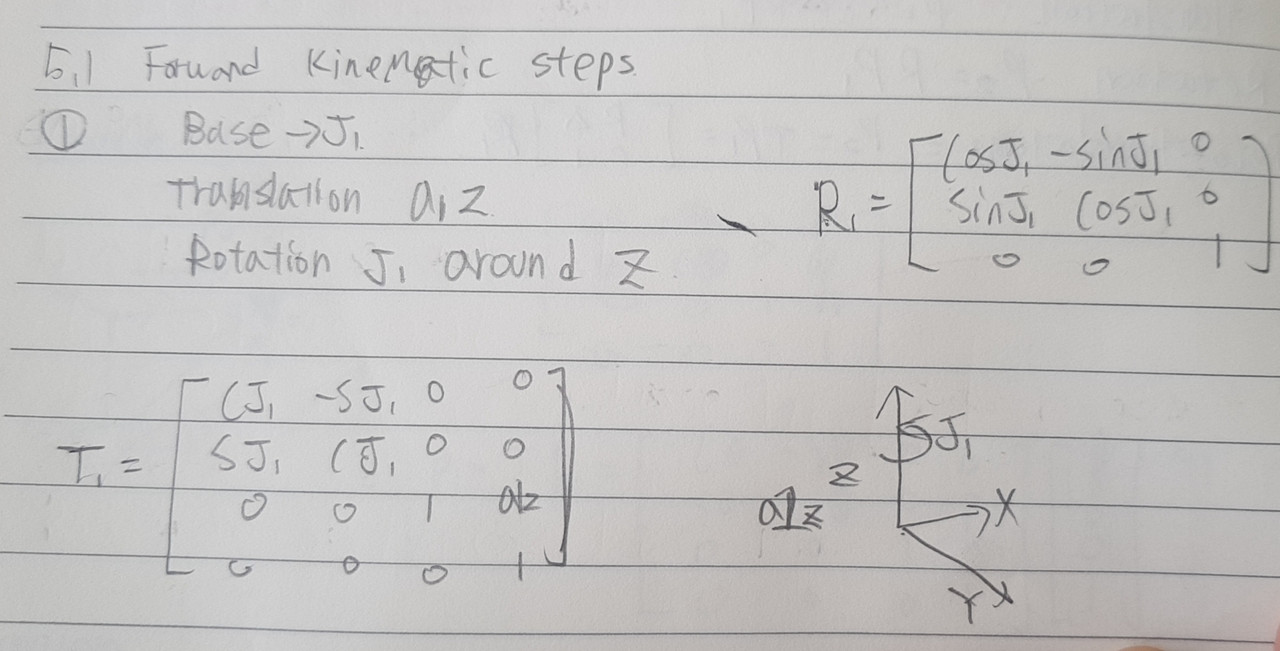 5.1 Forward Kinematic steps.
① Base → J₁.
Translation a₁z
Rotation J₁ around Z.
R₁ = [ CosJ₁ -sinJ₁ 0
sinJ₁ CosJ₁ 0
0 0 1 ]
T₁ = [ CJ₁ -SJ₁ 0 0
SJ₁ CJ₁ 0 0
0 0 1 a1z
0 0 0 1 ]
J₁
Z
a1z
X
Y